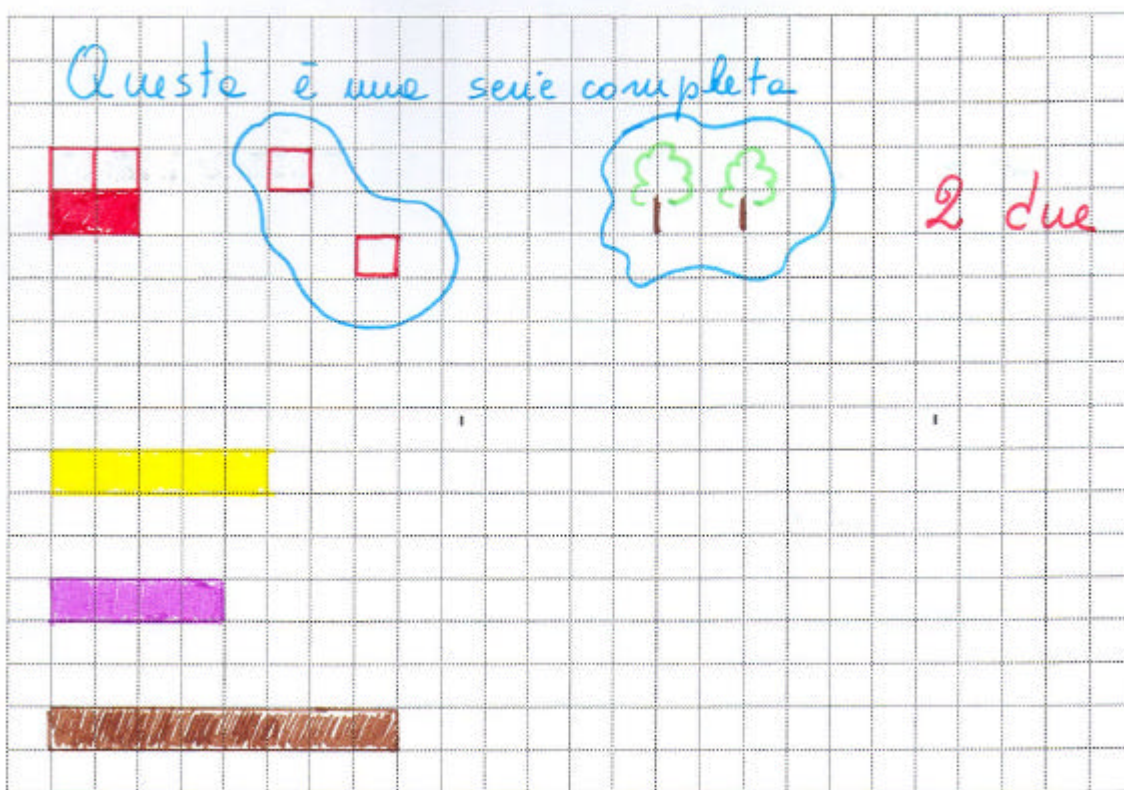 Questa è una serie completa
2 due